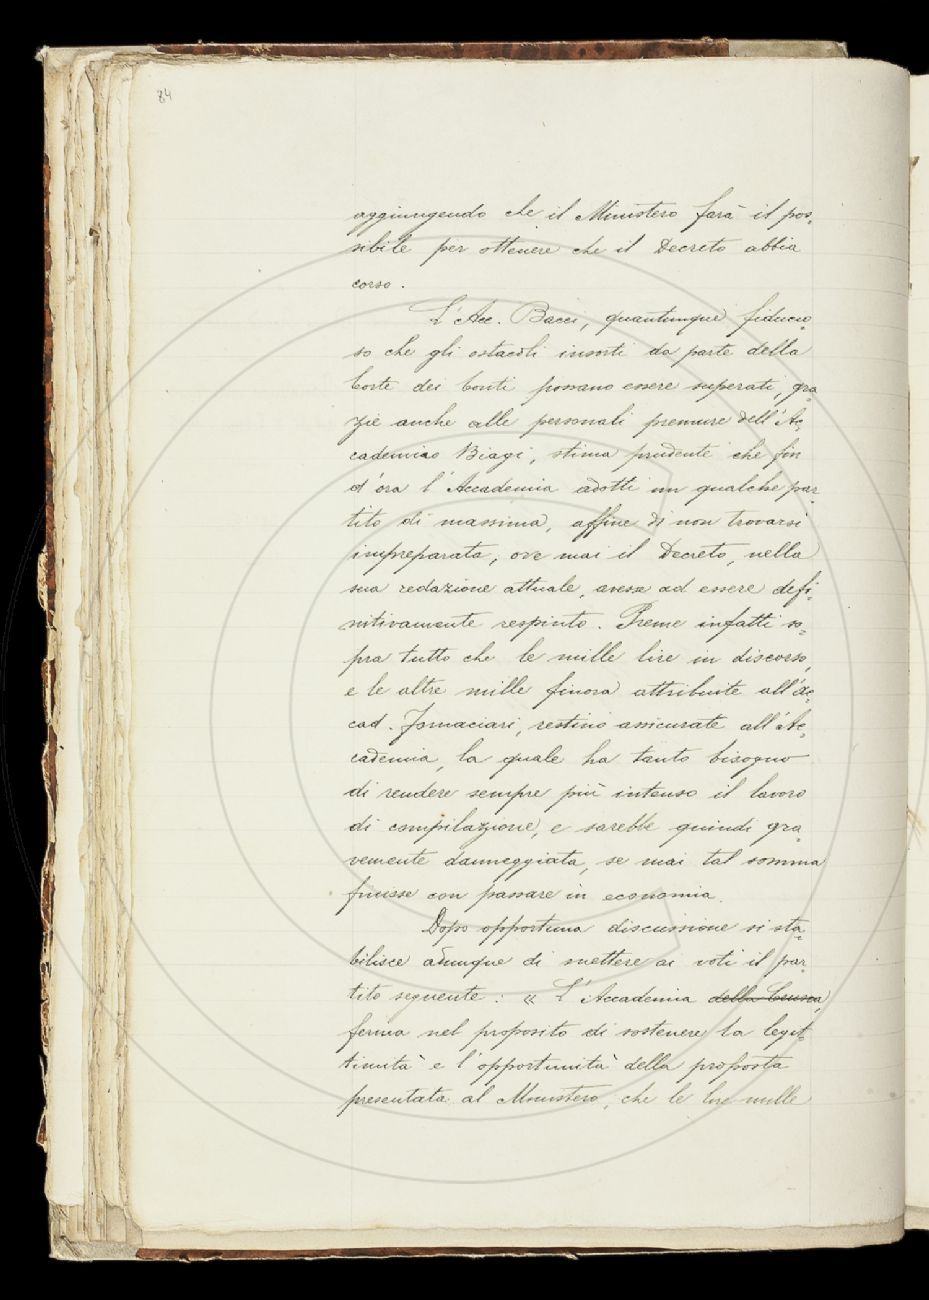 84
aggiungendo che il Ministero farà il pos-
sibile per ottenere che il Decreto abbia
corso.
L'Acc. Bacci, quantunque fiducio-
so che gli ostacoli insorti da parte della
Corte dei Conti possano essere superati, gra-
zie anche alle personali premure dell'Ac-
cademico Biagi, stima prudente che fin
d'ora l'Accademia adotti un qualche par-
tito di massima, affine di non trovarsi
impreparata, ove mai il Decreto, nella
sua redazione attuale, avesse ad essere defi-
nitivamente respinto. Preme infatti so-
pra tutto che le mille lire in discorso,
e le altre mille finora attribuite all'Ac-
cad. Fornaciari, restino assicurate all'Ac-
cademia, la quale ha tanto bisogno
di rendere sempre più intenso il lavoro
di compilazione, e sarebbe quindi gra-
vemente danneggiata, se mai tal somma
finisse con passare in economia.
Dopo opportuna discussione si sta-
bilisce adunque di mettere ai voti il par-
tito seguente: « L'Accademia della Crusca,
ferma nel proposito di sostenere la legit-
timità e l'opportunità della proposta
presentata al Ministero, che le lire mille